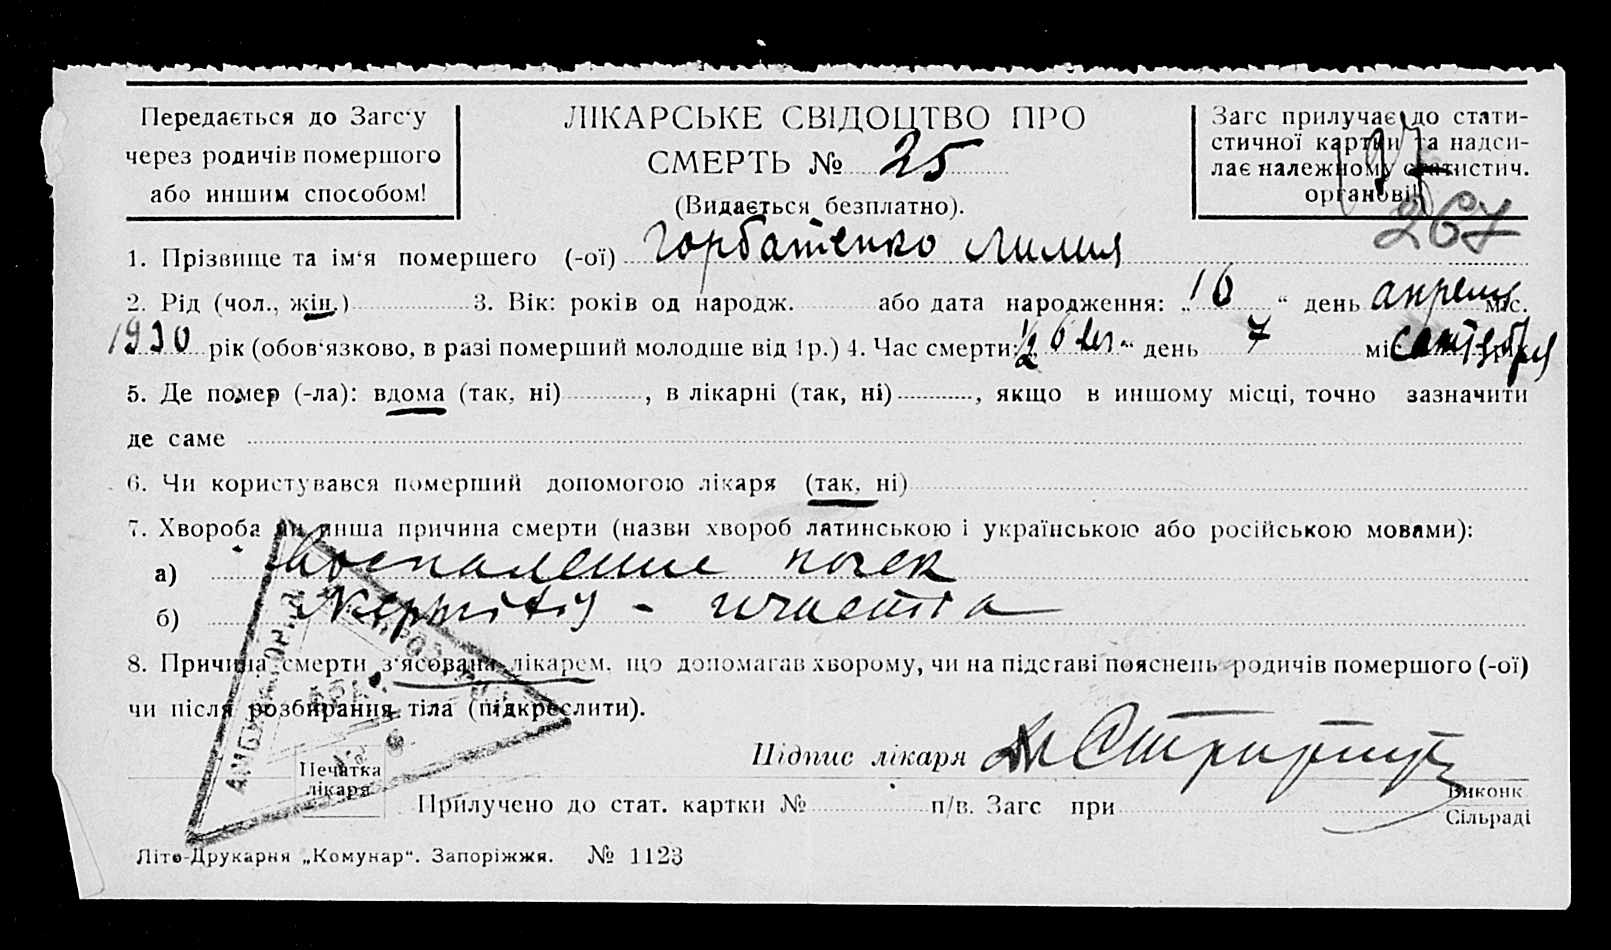 Передається до Загс'у
через родичів помершого
або иншим способом!
ЛІКАРСЬКЕ СВІДОЦТВО ПРО
СМЕРТЬ № 25
(Видається безплатно).
Загс прилучає до стати-
стичної картки та надси-
лає належному статистич.
органові!
197
267
1. Прізвище та ім'я помершего (-ої) Горбатенко Лилия
2. Рід (чол., жін.) 3. Вік: років од народж. або дата народження: „16“ день апреля міс.
1930 рік (обов'язково, в разі померший молодше від 1 р.) 4. Час смерти: „½ 6 “ день 7 міс. сентября
5. Де помер (-ла): вдома (так, ні), в лікарні (так, ні), якщо в иншому місці, точно зазначити
де саме
6. Чи користувався померший допомогою лікаря (так, ні)
7. Хвороба чи инша причина смерти (назви хвороб латинською і українською або російською мовами):
а) Воспаление почек
б) Nephritis -
8. Причина смерти з'ясована лікарем, що допомагав хворому, чи на підставі пояснень родичів помершого (-ої)
чи після розбирання тіла (підкреслити).
Підпис лікаря
Печатка
лікаря
Прилучено до стат. картки № п/в. Загс при Виконк
Сільраді
Літо-Друкарня „Комунар“. Запоріжжя. № 1123